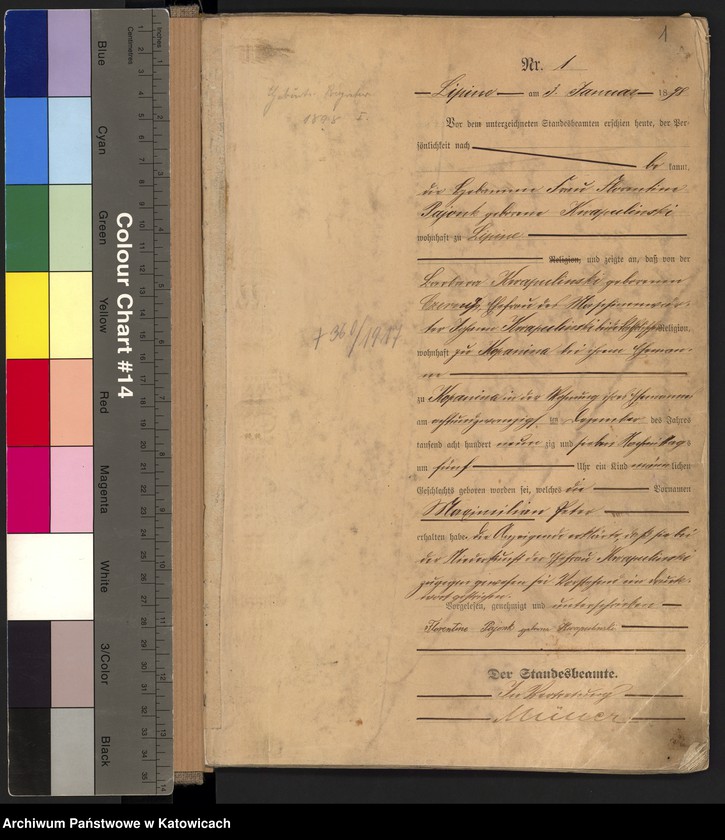 1
Nr. 1
Lipine am 3. Januar 1898
Vor dem unterzeichneten Standesbeamten erschien heute, der Per-
sönlichkeit nach
be kannt,
die Hebamme Frau Florentine
Pajonk geborene Kwapulinski
wohnhaft zu Lipine
Religion, und zeigte an, daß von der
Barbara Kwapulinski geborenen
Ehefrau des
Johann Kwapulinski Religion,
wohnhaft zu Kopanina bei ihrem Eheman-
ne
zu Kopanina in der Wohnung ihres Ehemannes
am achtundzwanzigsten Dezember des Jahres
tausend acht hundert neun zig und sieben Nachmittags
um fünf Uhr ein Kind männlichen
Geschlechts geboren worden sei, welches die Vornamen
Maximilian Peter
erhalten habe. die Anzeigende erklärte, daß sie bei
der Niederkunft der Ehefrau Kwapulinski
zugegen gewesen sei. Vorstehend ein Druck-
wort gestrichen.
Vorgelesen, genehmigt und unterschrieben
Florentine Pajonk geborne Kwapulinski
Der Standesbeamte.
In Vertretung
Müller
Geburts-Register
1898 I.
Colour Chart #14
Blue
Cyan
Green
Yellow
Red
Magenta
White
3/Color
Black
Centimetres
Inches
Archiwum Państwowe w Katowicach